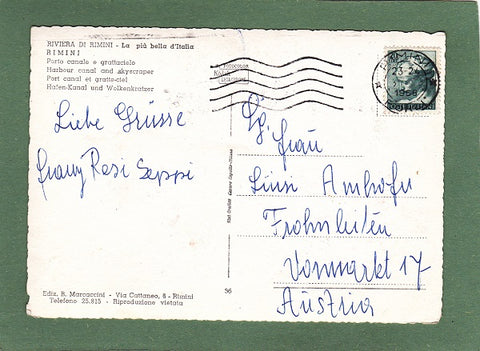 RIVIERA DI RIMINI - La più bella d'Italia
RIMINI
Porto canale e grattacielo
Harbour canal and skyscraper
Port canal et gratte-ciel
Hafen-Kanal und Wolkenkratzer
Liebe Grüsse
Franz Resi Seppi
Ediz. B. Marcaccini - Via Cattaneo, 8 - Rimini
Telefono 23.815 - Riproduzione vietata
56
23-24
Frau
Frohnleiten
Vormarkt 17
Austria